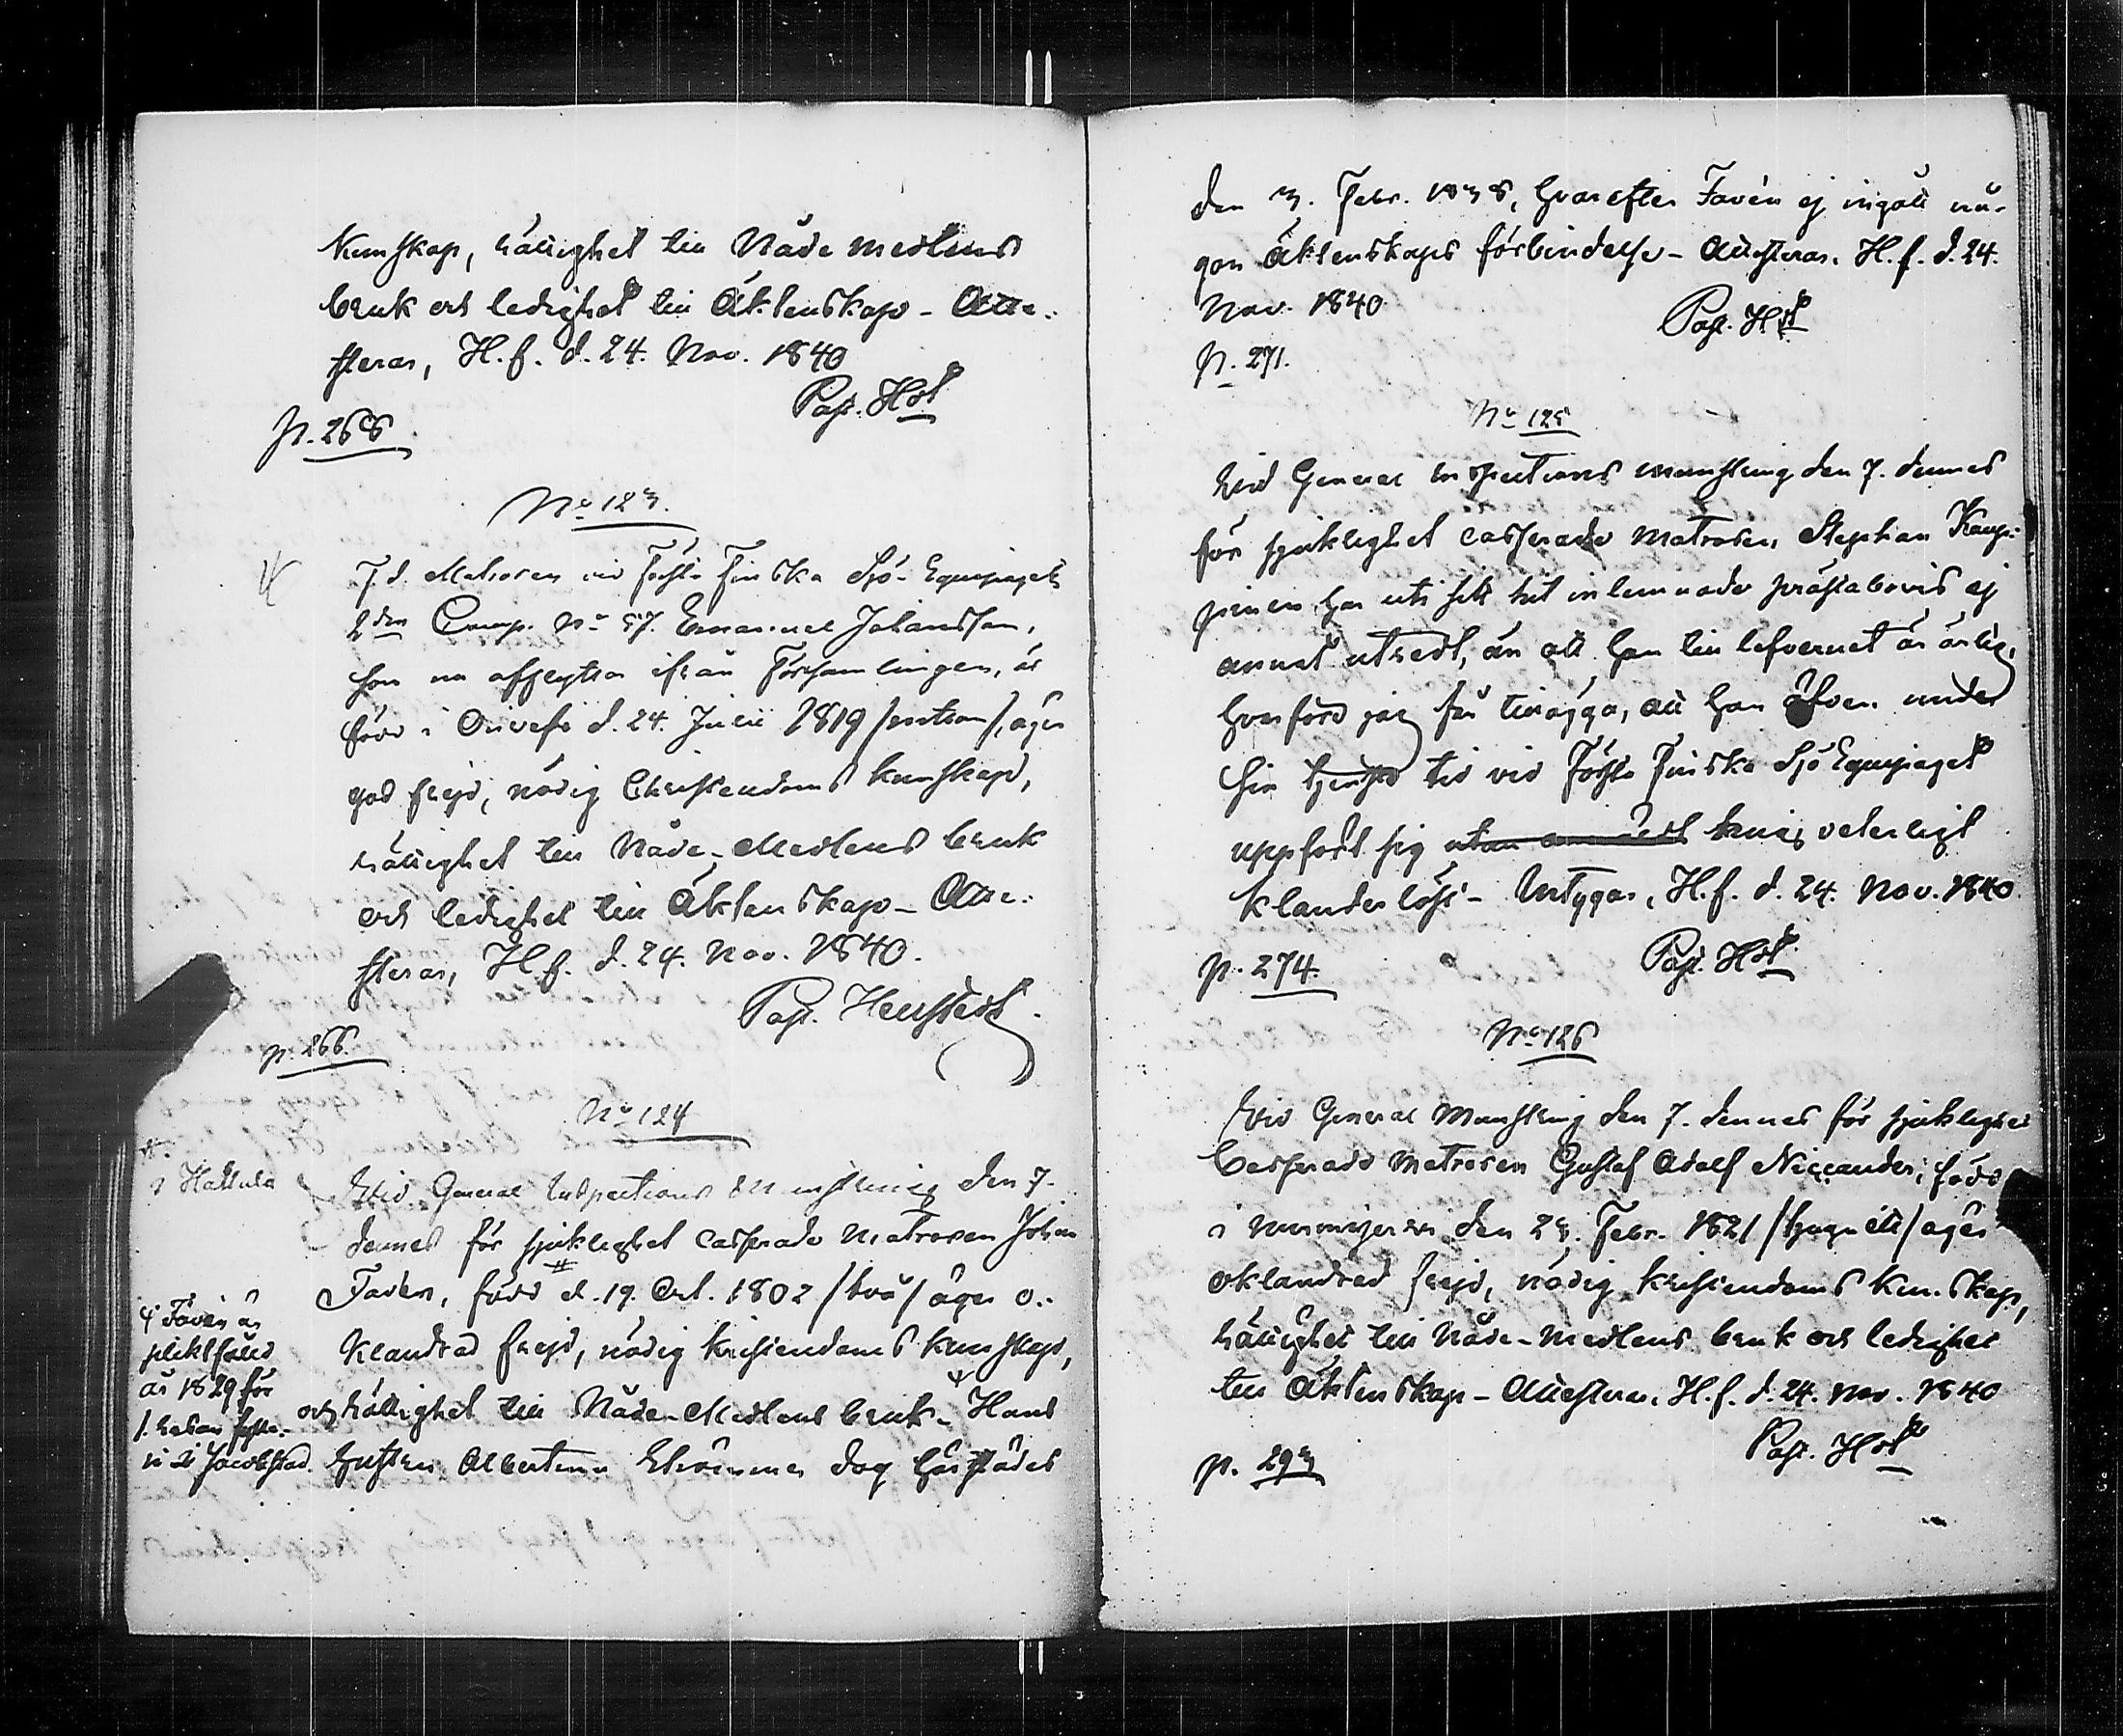 Kunskap, hällighet till Nåde medlens
bruk och ledighet till Äktenskap - Atte-
steras, H.f. d. 24. Nov. 1840
Past. Hst
p. 266
No 123.
F.d. Matrosen vid Första Finska Sjö-Equipagets
2den Comp. No 57. Emanuel Johansson,
som nu afflyttar ifrån Församlingen, är
född i Orivesi d. 24. Julii 1819 /nitton/, äger
god frejd, nödig Christendoms kunskap,
hällighet till Nåde-Medlens bruk
och ledighet till Äktenskap - Atte-
steras, H.f. d. 24. Nov. 1840.
Past. Hellstedt
p. 266.
No 124
#.
i Hattula
Vid General Inspections Mönstring den 7.
dennes för sjuklighet casserade Matrosen Johan
Favén, född # d. 19. Oct. 1802 /två/ äger o-
klandrad frejd, nödig kristendoms kunskap,
och hällighet till Nåde-Medlens bruk - Hans
Hustru Albertina Strömmer dog härstädes
Favén är
pliktfälld
år 1829 för
i Jacobstad.
den 3. Febr. 1838, hvarefter Favén ej ingått nå-
gon Äktenskaps förbindelse - Attesteras, H.f. d. 24.
Nov. 1840
Past. Hst
p. 271.
No 125
Vid General Inspections munstring den 7. dennes
för sjuklighet casserade Matrosen Stephan Kaup-
pinen har uti sitt hit inlemnade prästabevis ej
annat utredt, än att han till lefvernet är ärlig,
hvarföre jag får tillägga, att han äfven under
sin tjenste tid vid Första Finska Sjö Equipaget
uppfört sig utan veterligt
klanderlöst - Intygas, H.f. d. 24. Nov. 1840.
Past. Hst
p. 274.
No 126
Vid General Munstring den 7. dennes för sjuklighet
Casserade Matrosen Gustaf Adolf Niccander, född
i Nurmijervi den 23. Febr. 1821 /tjuguett/ äger
oklandrad frejd, nödig kristendoms kunskap,
hällighet till Nåde-Medlens bruk och ledighet
till Äktenskap - Attesteras, H.f. d. 24. Nov. 1840
Past. Hst
p. 293